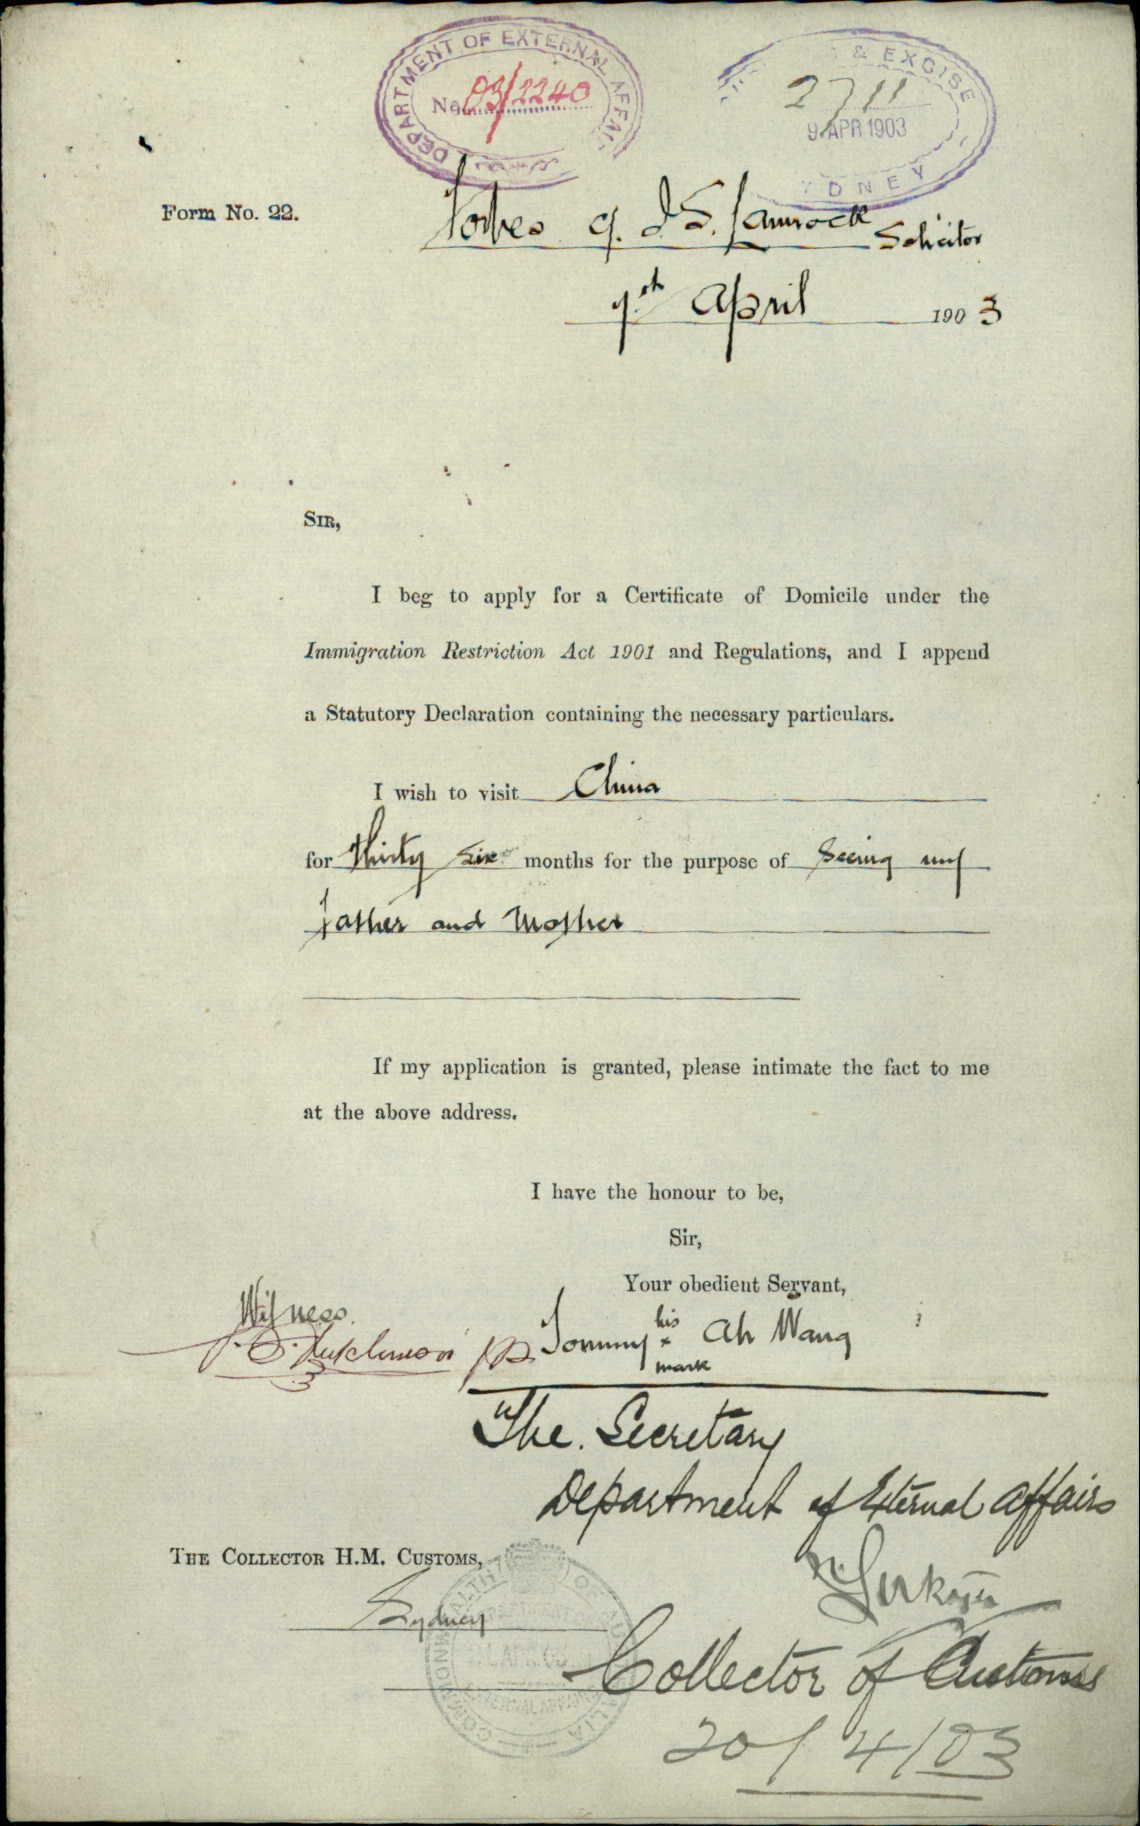 DEPARTMENT OF EXTERNAL AFFAI
No. 03/2240
& EXCISE
2711
9 APR 1903
YDNEY
Form No. 22.
Forbes c/. J. S. Lamrock Solicitor
9th April 1903
SIR,
I beg to apply for a Certificate of Domicile under the
Immigration Restriction Act 1901 and Regulations, and I append
a Statutory Declaration containing the necessary particulars.
I wish to visit China
for Thirty Six months for the purpose of Seeing my
father and Mother
If my application is granted, please intimate the fact to me
at the above address.
I have the honour to be,
Sir,
Your obedient Servant,
Witness
Hutchinson JP
Tommy his x mark Ah Wang
The Secretary
Department of External Affairs
THE COLLECTOR H.M. CUSTOMS,
Sydney
COMMONWEALTH OF
APR 03
EXTERNAL AFFAIRS
Collector of Customs
20/4/03